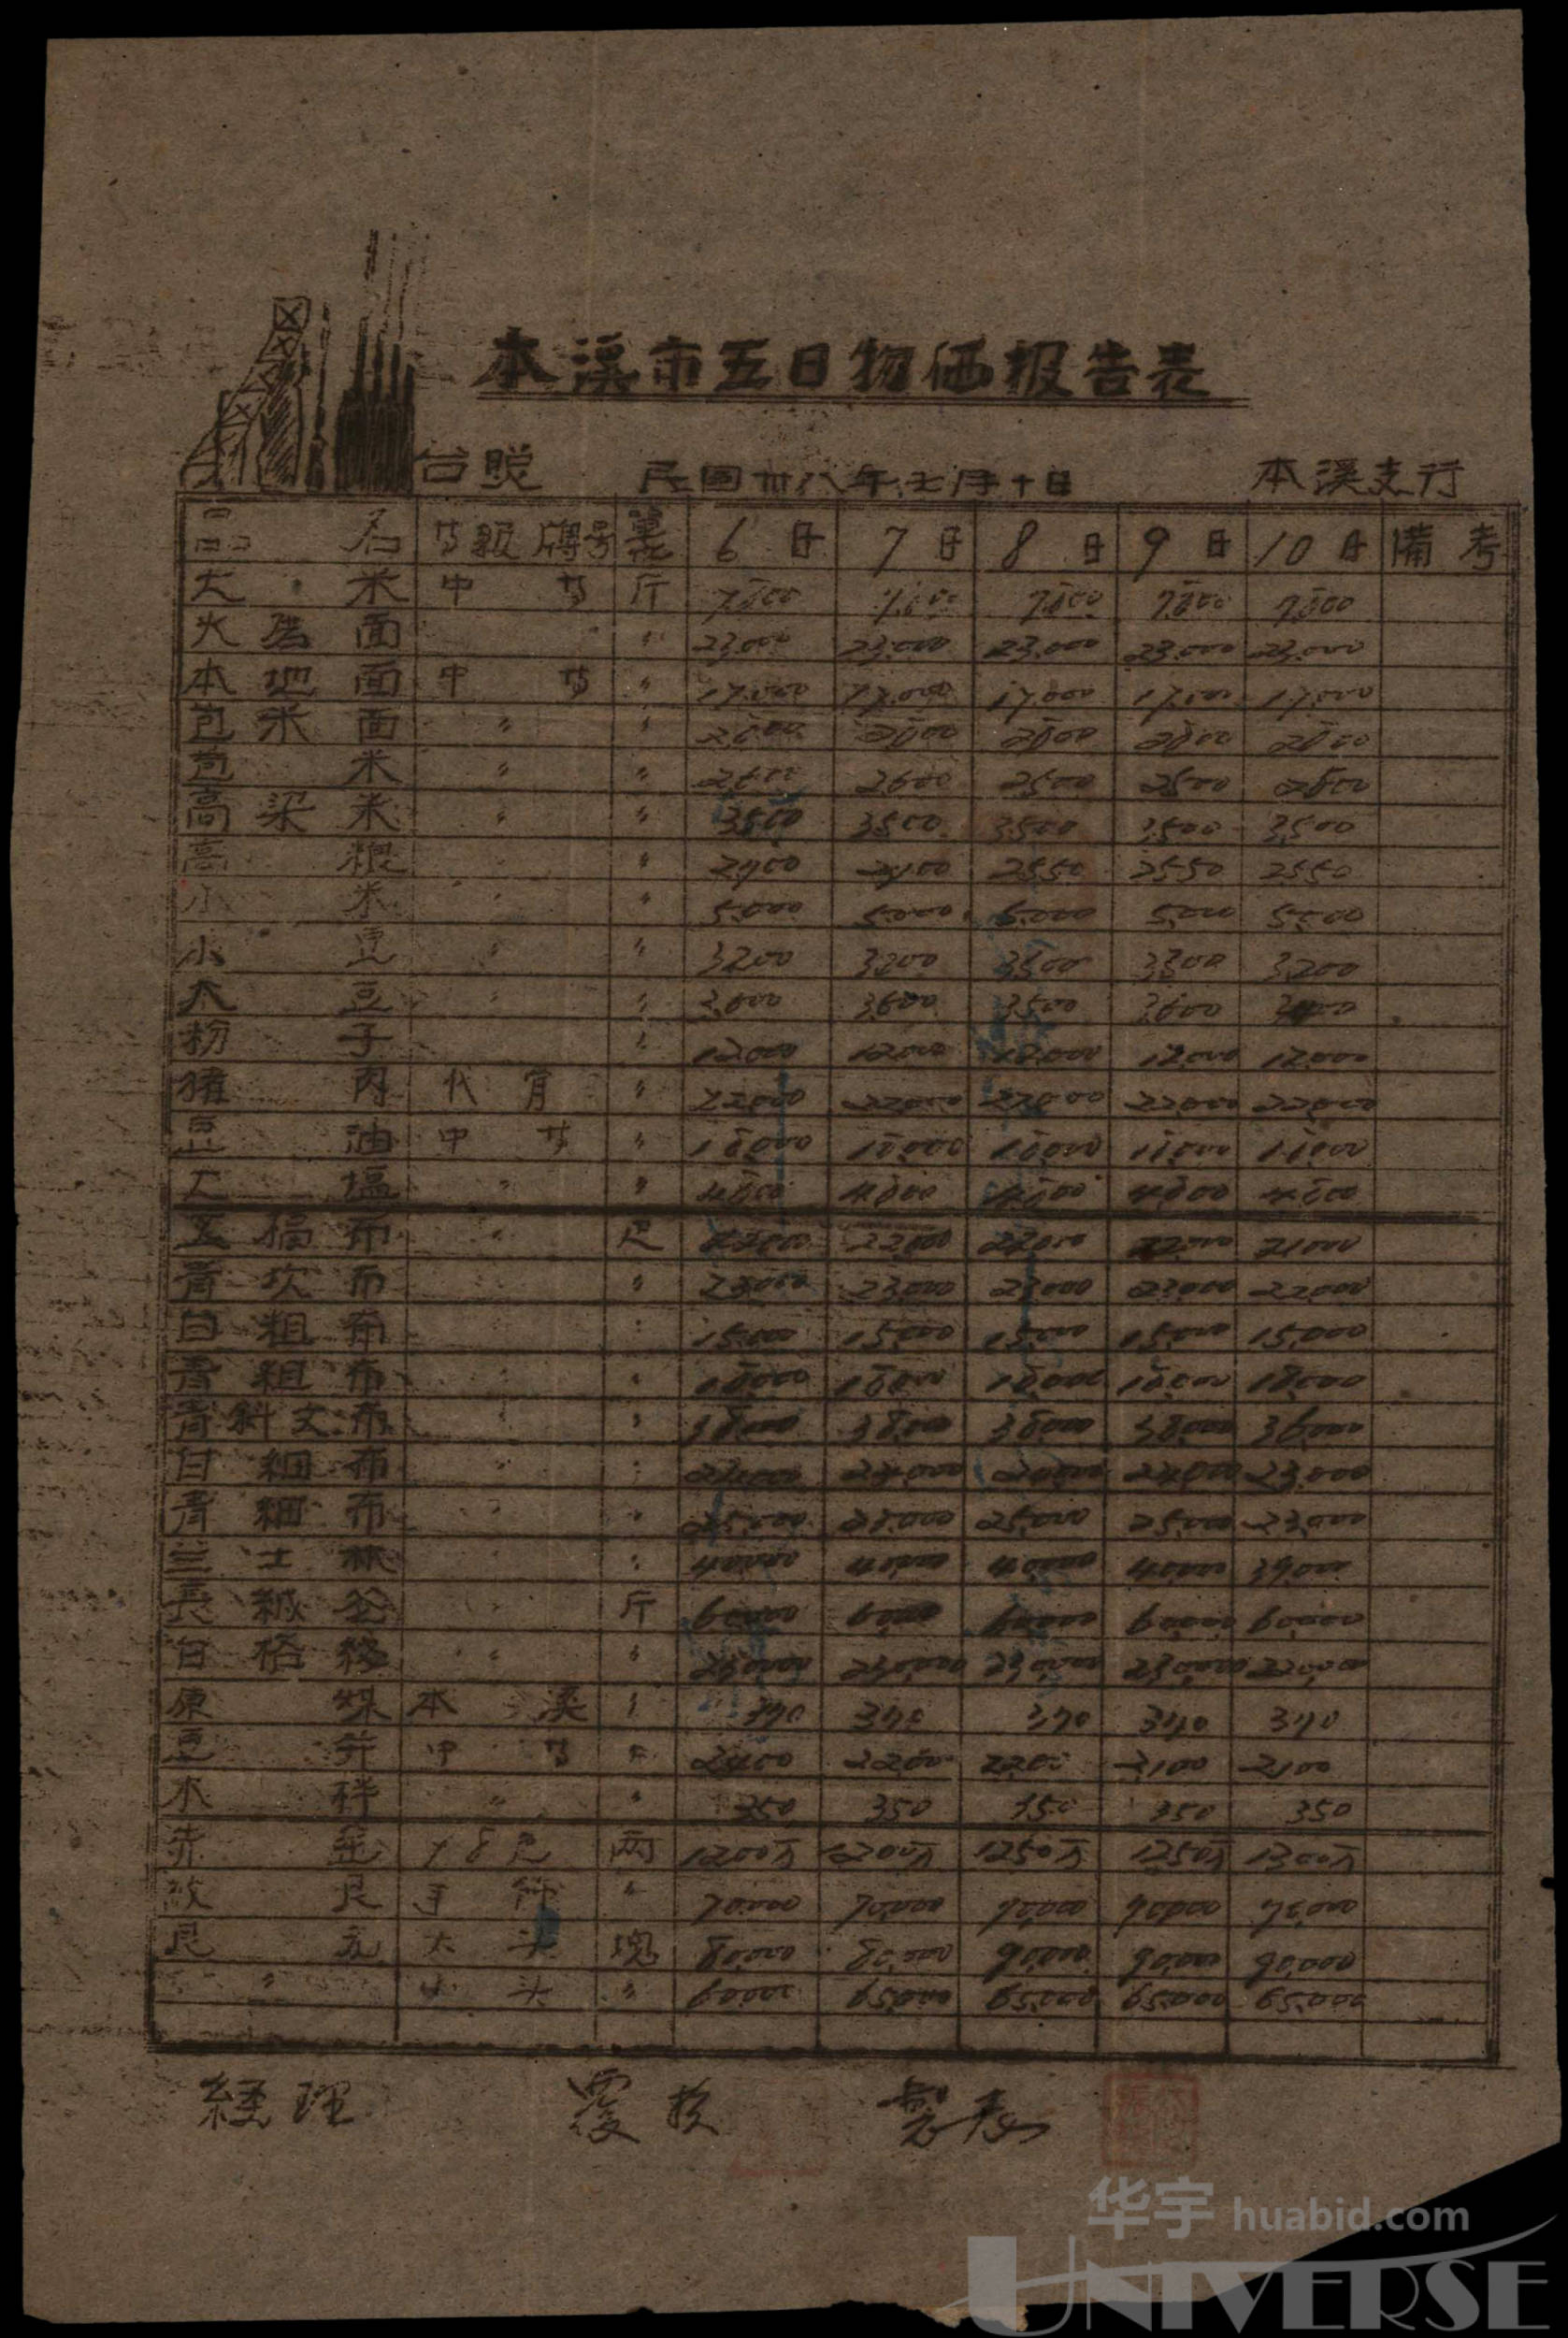 本溪市五日物価报告表
民國卅八年七月十日 本溪支行
品名 等級牌号 單位 6日 7日 8日 9日 10日 備考
大米 中等 斤 7800 7800 7800 7800
面 〃 23,000 23,000 23,000 23,000 23,000
本地面 中等 〃 17,000 17,000 17,000 17,000 17,000
苞米面 〃 〃 2800 2800 2800 2800
苞米 〃 〃 2600 2500 2500
高粱米 〃 〃 3500 3500 3500 3500 3500
高粮 〃 2400 2400 2550 2550 2550
小米 〃 〃 5,000 5,000 5,000 5,000 5,000
小豆 〃 〃 3200 3200 3300 3300 3200
大豆 〃 〃 3600 3600 3500 3600
粉子 〃 12000 12000 12000 12000 12000
猪肉 〃 22000 22000 22000 22000 22000
豆油 中等 〃 18000 18000 18000 18000 18000
大塩 〃 〃 4800 4800 4800 4800 4800
五福布 〃 尺 22000 22000 22000 22000 21000
青坎布 〃 23000 23000 23000 23000 22000
白粗布 〃 15000 15000 15000 15000 15000
青粗布 〃 〃 18000 18000 18000 18000 18000
青斜文布 〃 38000 38000 38000 38000 36000
白細布 〃 〃 24000 24000 24000 24000 23000
青細布 〃 〃 25000 25000 25000 25000 23000
兰士林 〃 40000 40000 40000 40000 39000
斤 60000 60000 60000 60000 60000
白 〃 〃 230000 230000 230000 230000 220000
原煤 本溪 〃 370 370 370 370 370
豆并 中等 〃 2400 2200 2200 2100 2100
木样 〃 〃 350 350 350 350 350
赤金 98色 两 1200万 1200万 1250万 1250万 1300万
手飾 〃 70,000 70,000 90,000 90,000
艮元 大头 塊 80,000 80,000 90,000 90,000 90,000
〃 小头 〃 60000 65,000 65,000 65,000 65,000
経理 覆核 製表
华宇 huabid.com
UNIVERSE